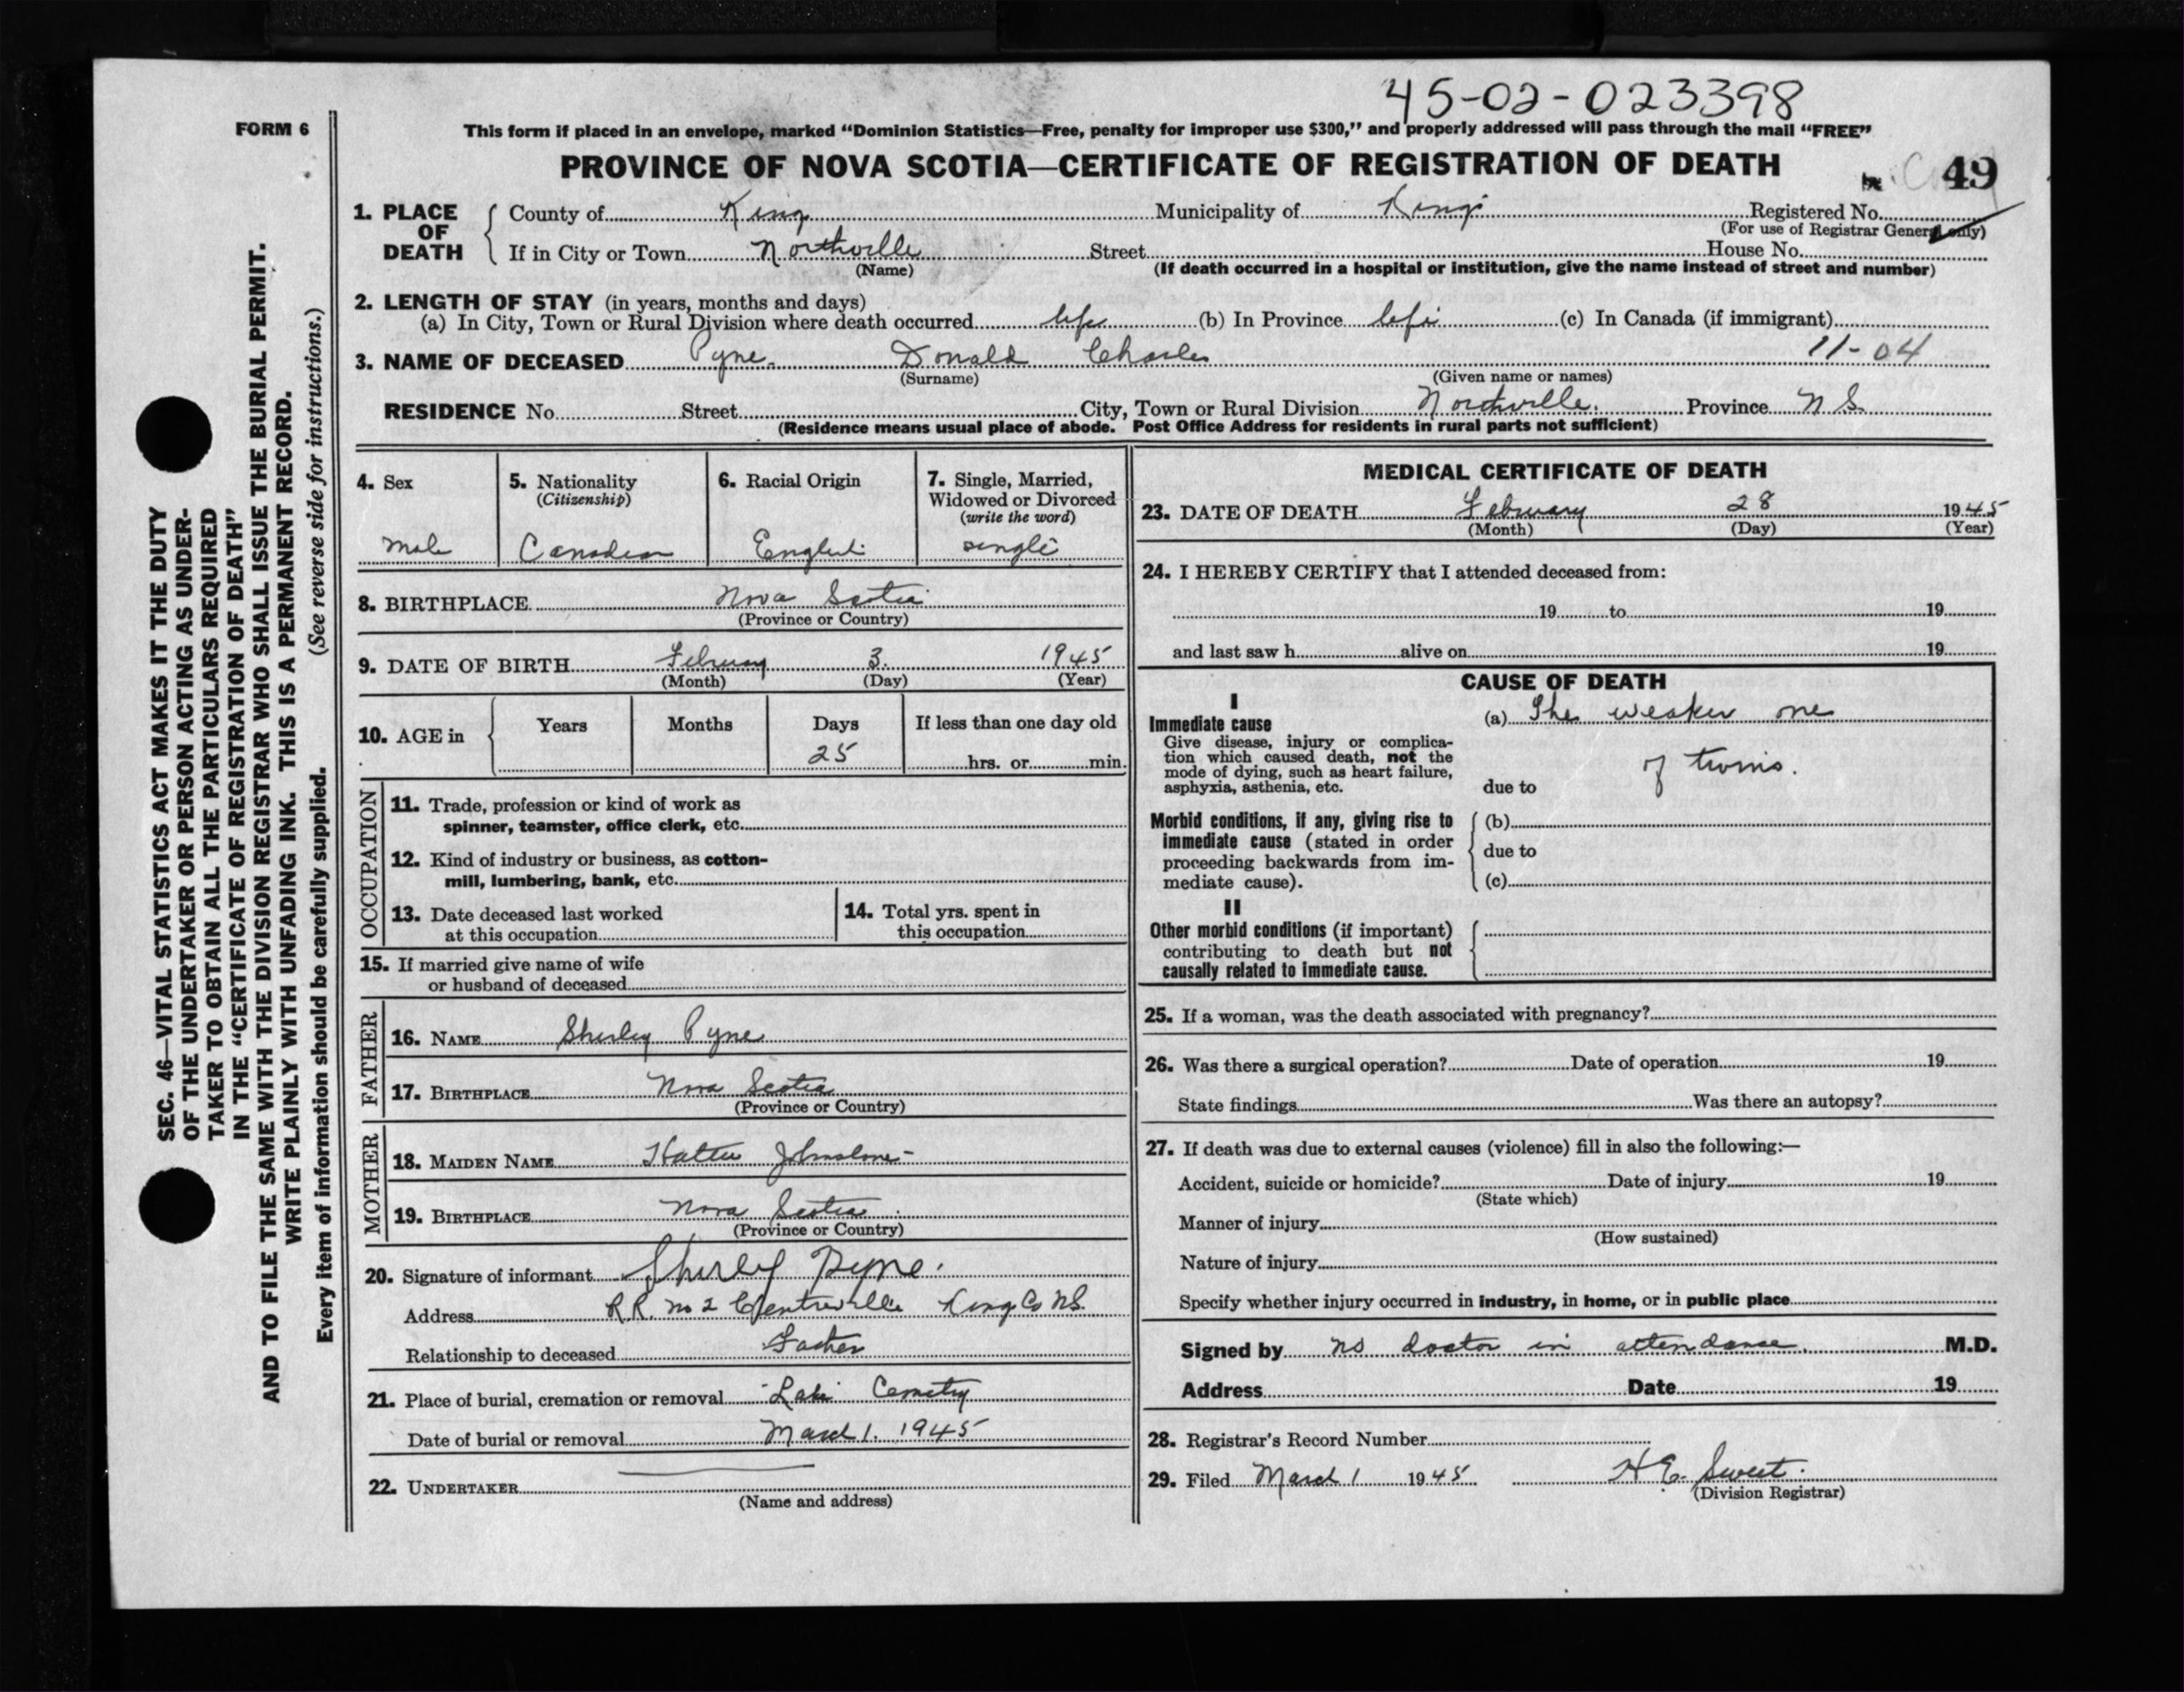 45-02-023398
FORM 6
This form if placed in an envelope, marked “Dominion Statistics—Free, penalty for improper use $300,” and properly addressed will pass through the mail “FREE”
PROVINCE OF NOVA SCOTIA—CERTIFICATE OF REGISTRATION OF DEATH
49
1. PLACE OF DEATH
County of Kings Municipality of Kings Registered No.
(For use of Registrar General only)
If in City or Town Northville Street House No.
(Name) (If death occurred in a hospital or institution, give the name instead of street and number)
2. LENGTH OF STAY (in years, months and days)
(a) In City, Town or Rural Division where death occurred life (b) In Province life (c) In Canada (if immigrant)
3. NAME OF DECEASED Pyne Donald Charles 11-04
(Surname) (Given name or names)
RESIDENCE No. Street City, Town or Rural Division Northville. Province N.S.
(Residence means usual place of abode. Post Office Address for residents in rural parts not sufficient)
4. Sex
male
5. Nationality
(Citizenship)
Canadian
6. Racial Origin
English
7. Single, Married,
Widowed or Divorced
(write the word)
single
8. BIRTHPLACE Nova Scotia
(Province or Country)
9. DATE OF BIRTH February 3. 1945
(Month) (Day) (Year)
10. AGE in
Years Months Days If less than one day old
25 hrs. or min.
OCCUPATION
11. Trade, profession or kind of work as
spinner, teamster, office clerk, etc.
12. Kind of industry or business, as cotton-
mill, lumbering, bank, etc.
13. Date deceased last worked
at this occupation
14. Total yrs. spent in
this occupation
15. If married give name of wife
or husband of deceased
FATHER
16. NAME Shirley Pyne
17. BIRTHPLACE Nova Scotia
(Province or Country)
MOTHER
18. MAIDEN NAME Hattie Johnstone
19. BIRTHPLACE Nova Scotia
(Province or Country)
20. Signature of informant Shirley Pyne.
Address R.R. no 2 Centreville Kings Co N.S.
Relationship to deceased Father
21. Place of burial, cremation or removal Cemetry
Date of burial or removal March 1. 1945
22. UNDERTAKER
(Name and address)
MEDICAL CERTIFICATE OF DEATH
23. DATE OF DEATH February 28 1945
(Month) (Day) (Year)
24. I HEREBY CERTIFY that I attended deceased from:
19 to 19
and last saw h alive on 19
CAUSE OF DEATH
I
Immediate cause
Give disease, injury or complica-
tion which caused death, not the
mode of dying, such as heart failure,
asphyxia, asthenia, etc.
(a) The weaker one
due to of twins.
Morbid conditions, if any, giving rise to
immediate cause (stated in order
proceeding backwards from im-
mediate cause).
(b)
due to
(c)
II
Other morbid conditions (if important)
contributing to death but not
causally related to immediate cause.
25. If a woman, was the death associated with pregnancy?
26. Was there a surgical operation? Date of operation 19
State findings Was there an autopsy?
27. If death was due to external causes (violence) fill in also the following:—
Accident, suicide or homicide? Date of injury 19
(State which)
Manner of injury
(How sustained)
Nature of injury
Specify whether injury occurred in industry, in home, or in public place
Signed by no doctor in attendance. M.D.
Address Date 19
28. Registrar's Record Number
29. Filed March 1 1945 H E. Sweet.
(Division Registrar)
SEC. 46—VITAL STATISTICS ACT MAKES IT THE DUTY
OF THE UNDERTAKER OR PERSON ACTING AS UNDER-
TAKER TO OBTAIN ALL THE PARTICULARS REQUIRED
IN THE “CERTIFICATE OF REGISTRATION OF DEATH”
AND TO FILE THE SAME WITH THE DIVISION REGISTRAR WHO SHALL ISSUE THE BURIAL PERMIT.
WRITE PLAINLY WITH UNFADING INK. THIS IS A PERMANENT RECORD.
Every item of information should be carefully supplied. (See reverse side for instructions.)